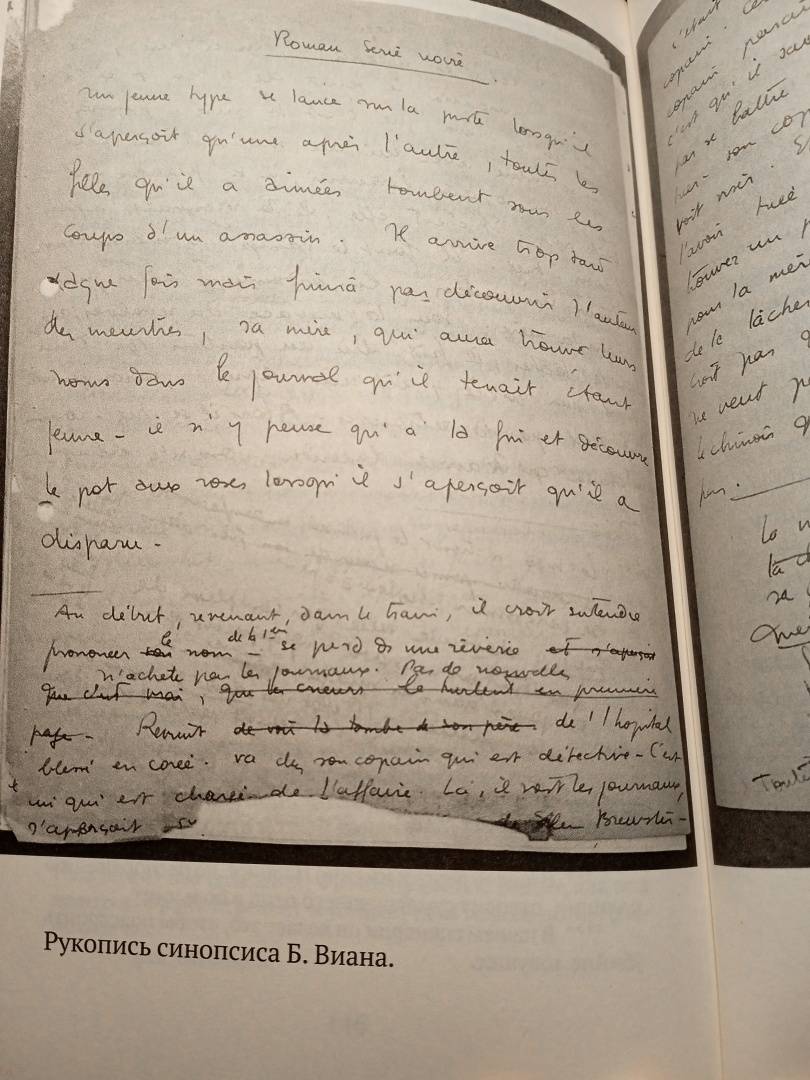 Roman Serie noire
un jeune type se lance sur la piste lorsqu'il
s'aperçoit qu'une après l'autre, toutes les
filles qu'il a aimées tombent sous les
coups d'un assassin. Il arrive trop tard
chaque fois mais finira par découvrir l'auteur
des meurtres, sa mère, qui aura trouvé leurs
noms dans le journal qu'il tenait étant
jeune - il n'y pense qu'à la fin et découvre
le pot aux roses lorsqu'il s'aperçoit qu'il a
disparu -
Au début, revenant, dans le train, il croit entendre
prononcer le nom de la 1ère - se perd ds une rêverie et s'aperçoit
n'achète pas les journaux. Pas de nouvelles
que c'est vrai, que les crieurs le hurlent en première
page - Revient de voir la tombe de son père de l'hopital
blessé en corée. va chez son copain qui est détective - C'est
lui qui est chargé de l'affaire. Là, il voit les journaux,
s'aperçoit
Brewster -
c'était
copain.
copain
c'est qu'il
pas se battre
son
voit rien.
l'avoir tuée
trouver un
pour la
de le lâcher
croit pas
ne veut
le chinois
pas.
la
se
Рукопись синопсиса Б. Виана.